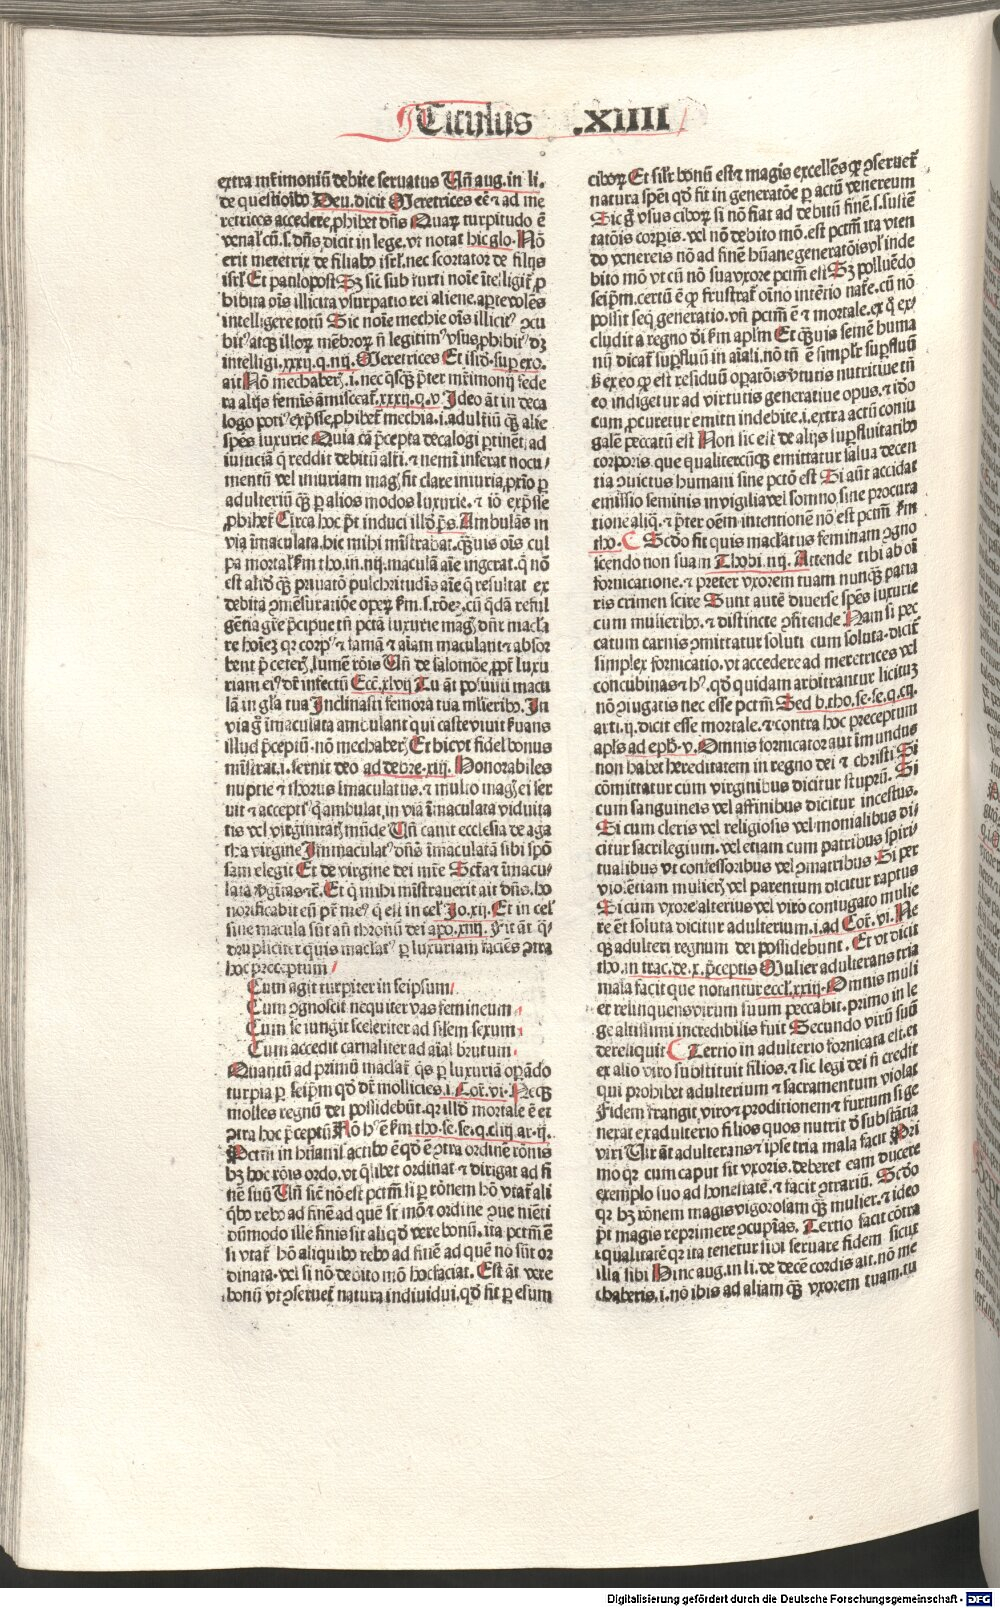 Titulus .XIIII
extra mr̄imoniū debite seruatus Vn̄ aug. in li.
de questioībꝰ Deu. dicit Meretrices eē ⁊ ad me
retrices accedere ꝓhibet dn̄s Quaꝝ turpitudo ē
venal̓ cū .s. dn̄s dicit in lege. vt notat hic glo. Nō
erit meretrix de filiabꝰ isrl̓. nec scortator de filijs
isrl̓ Et paulopost Sꝫ sic sub furti noīe ītelligit̓ ꝓ
hibita oīs illicita vsurpatio rei aliene. aꝑte volēs
intelligere totū Sic noīe mechie oīs illicitꝰ ꝯcu
bitꝰ atqꝫ illoꝝ mēbroꝝ n̄ legitimꝰ vsus ꝓhibitꝰ dꝫ
intelligi. xxxij. q. iiij. Meretrices Et isid. suꝑ exo.
ait Nō mechaberꝭ .i. nec qͥsqͣꝫ p̄ter mr̄imonij fede
ra alijs femīs āmisceat̓. xxxij. q. v Ideo āt in deca
logo potiꝰ exp̄sse ꝓhibet̓ mechia .i. adulteriū qͣꝫ alie
spēs luxurie Quia cā p̄cepta decalogi ꝑtinēt ad
iusticiā q̄ reddit debitū alt̓i. ⁊ nemī inferat nocu
mentū vel iniuriam magꝭ fit clare iniuria ꝓxīo ꝑ
adulteriū qͣꝫ ꝑ alios modos luxurie. ⁊ iō exp̄sse
ꝓhibet̓ Circa hoc p̄t induci illd̓ ps̄. Ambulās in
via īmaculata. hic mihi mīstrabat. qͣꝫuis oīs cul
pa mortal̓ ẜm tho. in. iiij. maculā aīe ingerat. q̄ nō
est aliqd̓ qͣꝫ priuatō pulchritudīs aīe q̄ resultat ex
debita ꝯmēsuratiōe opeꝝ ẜm. s. rōeꝫ. cū qͣdā reful
gētia gr̄e p̄cipue tn̄ pctā luxurie magꝭ dn̄r macla
re hoīeꝫ qꝛ corpꝰ ⁊ famā ⁊ aīam maculant ⁊ absor
bent p̄ ceterꝭ lumē rōis Vn̄ de salomōe ꝓpt̓ luxu
riam eiꝰ dr̄ infectū Ecc̄. xlvij Tu āt posuisti macu
lā in gl̓a tua Inclinasti femora tua mulieribꝰ. In
via gͦ īmaculata ambulant qui caste viuūt ẜuans
illud p̄ceptū nō mechaberꝭ Et hic vt fidel̓ bonus
mīstrat .i. seruit deo ad hebre. xiij. Honorabiles
nuptie ⁊ thorus īmaculatus. ⁊ multo magꝭ ei ser
uit ⁊ acceptꝰ qͥ ambulat in via īmaculata viduita
tis vel virginitatꝭ mūde Vn̄ canit ecclesia de aga
tha virgine Immaculatꝰ dn̄s īmaculatā sibi spō
sam elegit Et de virgine dei mr̄e Sctā ⁊ īmacu
lata v̓gītas ⁊c̄. Et qͥ mihi mīstrauerit ait dn̄s. ho
norificabit eū pr̄ meꝰ q̄ est in cel̓ Jo. xij. Et in cel̓
sine macula sūt an̄ thronū dei apo. xiiij. Fit āt q̄
drupliciter ꝙ quis maclat̓ ꝑ luxuriam faciēs ꝯtra
hoc preceptum
Cum agit turpiter in seipsum
Cum ꝯgnoscit nequiter vas femineum
Cum se iungit sceleriter ad silem sexum
Cum accedit carnaliter ad aīal brutum
Quantū ad primū maclat̓ qͥs ꝑ luxuriā oꝑādo
turpia ꝑ seip̄m qd̓ dr̄ mollicies. i. Cor̄. vi. Neqꝫ
molles regnū dei possidebūt. qꝛ illd̓ mortale ē et
ꝯtra hoc p̄ceptū Nō hꝰ ē ẜm tho. se. se. q. cliij. ar. ij.
Pctm̄ in hūanis actibꝰ ē qd̓ ē ꝯtra ordinē rōnis
hꝫ hoc rōis ordo. vt qͥlibet ordinat̓ ⁊ dirigat̓ ad fi
nē suū Vn̄ sic nō est pctm̄ si ꝑ rōnem hō vtat̓ ali
qͥbꝰ rebꝰ ad finē ad quē sūt mō ⁊ ordine ꝯueniēti
dūmodo ille finis sit aliqd̓ vere bonū. ita pctm̄ ē
si vtat̓ hō aliquibꝰ rebꝰ ad finē ad quē nō sūt or
dinata. vel si nō debito mō hoc faciat. Est āt vere
bonū vt ꝯseruet̓ natura indiuidui. qd̓ fit ꝑ esum
ciboꝝ Et silr̓ bonū est ⁊ magis excellēs ꝙ ꝯseruet̓
natura spēi qd̓ fit in generatōe ꝑ actū venereum
Sic gͦ vsus ciboꝝ si nō fiat ad debitū finē .s. sustē
tatōis corꝑis. vel nō debito mō. est pctm̄ ita vten
do venereis nō ad finē hūane generatōis vl̓ inde
bito mō vt cū nō sua vxore pctm̄ est Sꝫ polluēdo
seip̄m. certū ē ꝙ frustrat̓ oīno intētio nat̓e. cū nō
possit seqͥ generatio. vn̄ pctm̄ ē ⁊ mortale. ex q̄ ex
cludit̓ a regno di̓ ẜm apl̓m Et qͣꝫuis semē huma
nū dicat̓ suꝑfluū in aīali. nō tn̄ ē simplr̓ suꝑfluū
ẜ ex eo ꝙ est residuū oꝑatōis v̓tutis nutritiue tn̄
eo indiget̓ ad virtutis generatiue opus. ⁊ iō
cum ꝓcuretur emitti indebite .i. extra actū coniu
galē peccatū est Non sic est de alijs suꝑfluitatibꝰ
corporis. que qualitercūqꝫ emittantur salua decen
tia ꝯuictus humani sine pctō est Si aūt accidat
emissio seminis in vigilia vel somno. sine procura
tione aliqͣ. ⁊ p̄ter oēm intentionē nō est pctm̄ ẜm
tho. Scd̓o fit quis maclatus feminam ꝯgno
scendo non suam Thobi. iiij. Attende tibi ab oī
fornicatione. ⁊ preter vxorem tuam nunqͣꝫ patia
ris crimen scire Sunt autē diuerse spēs luxurie
cum mulieribꝰ. ⁊ distincte ꝯfitende Nam si pec
catum carnis ꝯmittatur soluti cum soluta. dicit̓
simplex fornicatio. vt accedere ad meretrices vel
concubinas ⁊ hꝰ. qd̓ quidam arbitrantur licituꝫ
nō ꝯiugatis nec esse pctm̄ Sed b. tho. se. se. q. cli.
arti. ij. dicit esse mortale. ⁊ contra hoc preceptum
apl̓s ad eph̓. v. Omnis fornicator aut īmundus
non habet hereditatem in regno dei ⁊ christi Si
cōmittatur cum virginibus dicitur stuprū. Si
cum sanguineis vel affinibus dicitur incestus.
Si cum cleris vel religiosis vel monialibus di
citur sacrilegium. vel etiam cum patribus spiri
tualibus vt confessoribus vel ꝯmatribus Si per
vio. etiam mulierꝭ vel parentum dicitur raptus
Si cum vxore alterius vel viro coniugato mulie
re ēt soluta dicitur adulterium. i. ad Cor̄. vi. Ne
qꝫ adulteri regnum dei possidebunt. Et vt dicit
tho. in trac. de. x. p̄ceptis Mulier adulterans tria
mala facit que notantur eccl̓. xxiij. Omnis muli
er relinquens virum suum peccabit. primo in le
ge altissimi incredibilis fuit Secundo virū suū
dereliquit Tertio in adulterio fornicata est. et
ex alio viro substituit filios. ⁊ sic legi dei n̄ credit
qui prohibet adulterium ⁊ sacramentum violat
Fidem frangit viro ⁊ proditionem ⁊ furtum si ge
nerat ex adulterio filios quos nutrit d̓ substātia
viri Vir āt adulterans ⁊ ipse tria mala facit Pri
mo qꝛ cum caput sit vxoris. deberet eam ducere
exemplo suo ad honestatē. ⁊ facit ꝯtrariū. Scd̓o
qꝛ hꝫ rōnem magis vigorosam qͣꝫ mulier. ⁊ ideo
p̄t magis reprimere ꝯcupīas. Tertio facit cōtra
equalitatē qꝛ ita tenetur sibi seruare fidem sicut
illa sibi Hinc aug. in li. de decē cordis ait. nō me
chaberis .i. nō ibis ad aliam qͣꝫ vxorem tuam. tu
Digitalisierung gefördert durch die Deutsche Forschungsgemeinschaft - DFG